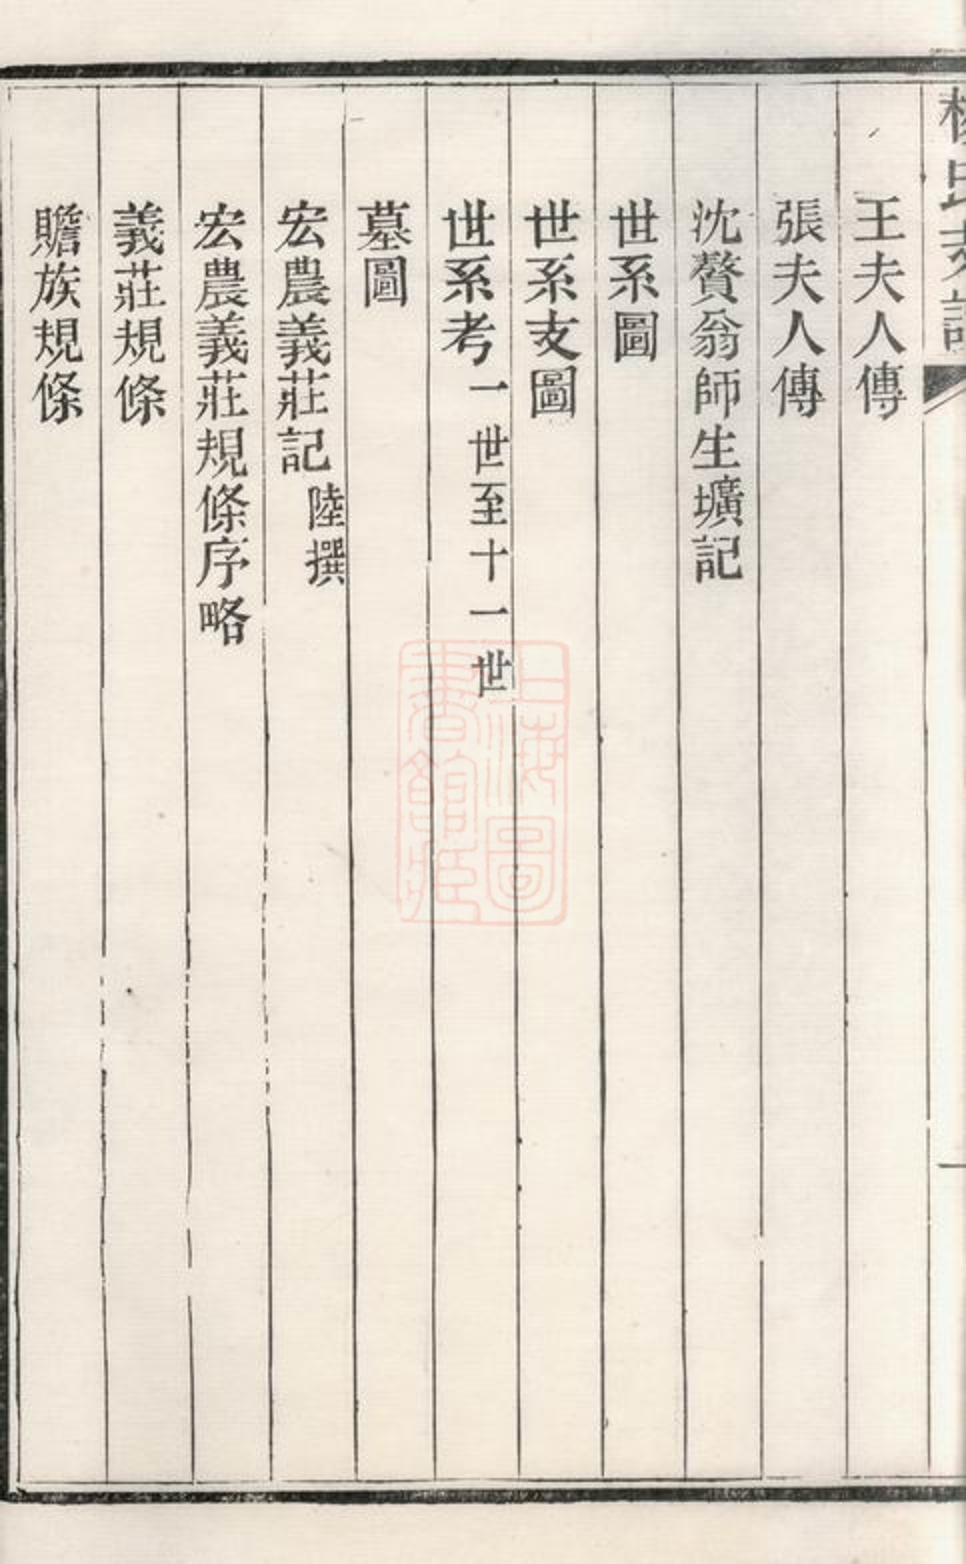 王夫人傳
張夫人傳
沈贅翁師生壙記
世系圖
世系支圖
世系考一世至十一世
墓圖
宏農義莊記陸撰
宏農義莊規條序略
義莊規條
贍族規條
上海圖
書館藏